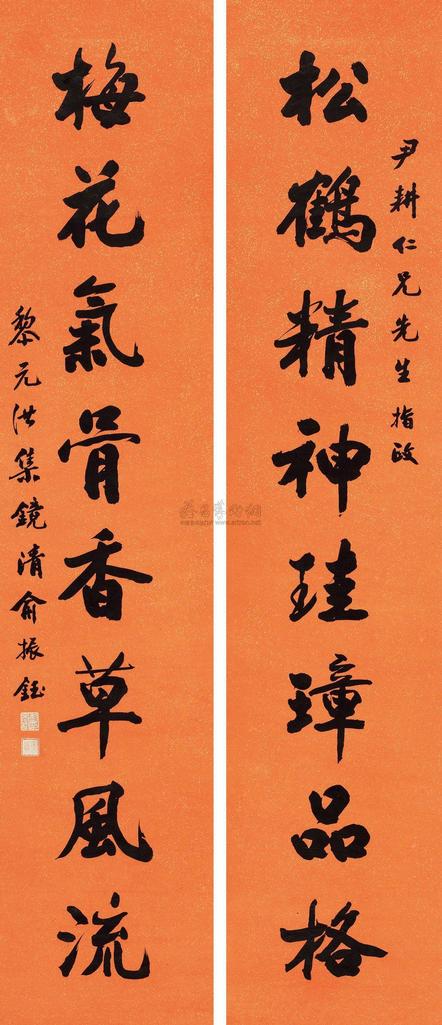 尹耕仁兄先生指政
松鶴精神珪璋品格
梅花氣骨香草風流
黎元洪集鏡清俞振鈺
www.artron.net